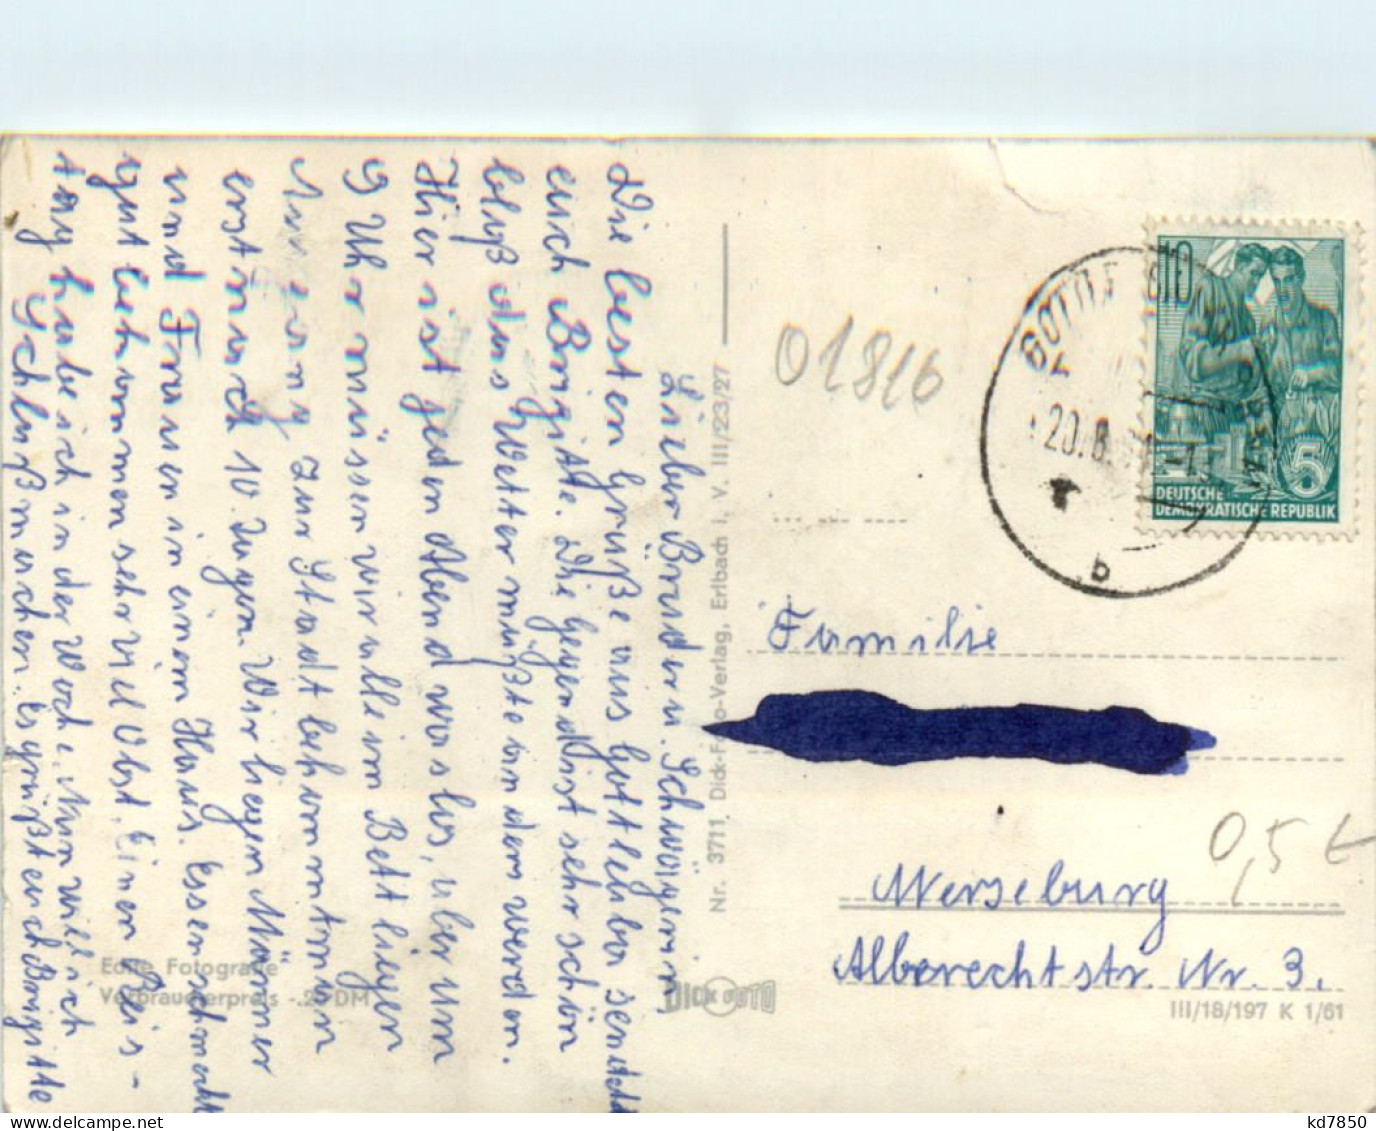 Lieber Bruder u. Schwägerin
Die besten Grüße aus Gottleuba sendet
euch Brigitte. Die Gegend ist sehr schön
bloß das Wetter müßte andem werden.
Hier ist jeden Abend was los, aber um
9 Uhr müssen wir alle im Bett liegen
zur Stadt bekommt man
erst nach 10 Tagen. Wir liegen Männer
und Frauen in einem Haus. Essen schmeckt
gut bekommen sehr viel Obst. Einen Reis-
tag habe ich in der Woche. Nun will ich
Schluß machen. Es grüßt euch Brigitte
Echte Fotografie
Verbraucherpreis -.25 DM
Nr. 3711 Dick-Foto-Verlag, Erlbach i. V. III/23/27
DICK FOTO
01816
10
5
DEUTSCHE
DEMOKRATISCHE REPUBLIK
20.8.
b
Familie
0,5 €
Merseburg
Albrechtstr. Nr. 3.
III/18/197 K 1/61
delcampe.net
kd7850